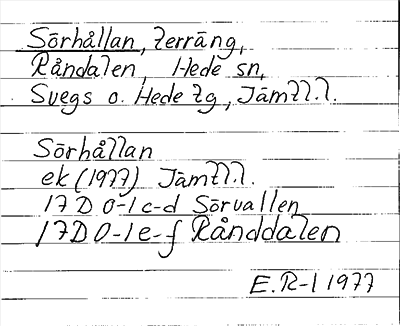 Sörhållan, terräng,
Råndalen, Hede sn,
Svegs o. Hede tg, Jämtl.l.
Sörhållan
ek (1977) Jämtl.l.
17D 0-1 c-d Sörvallen
17D 0-1 e-f Rånddalen
E.R-l 1977